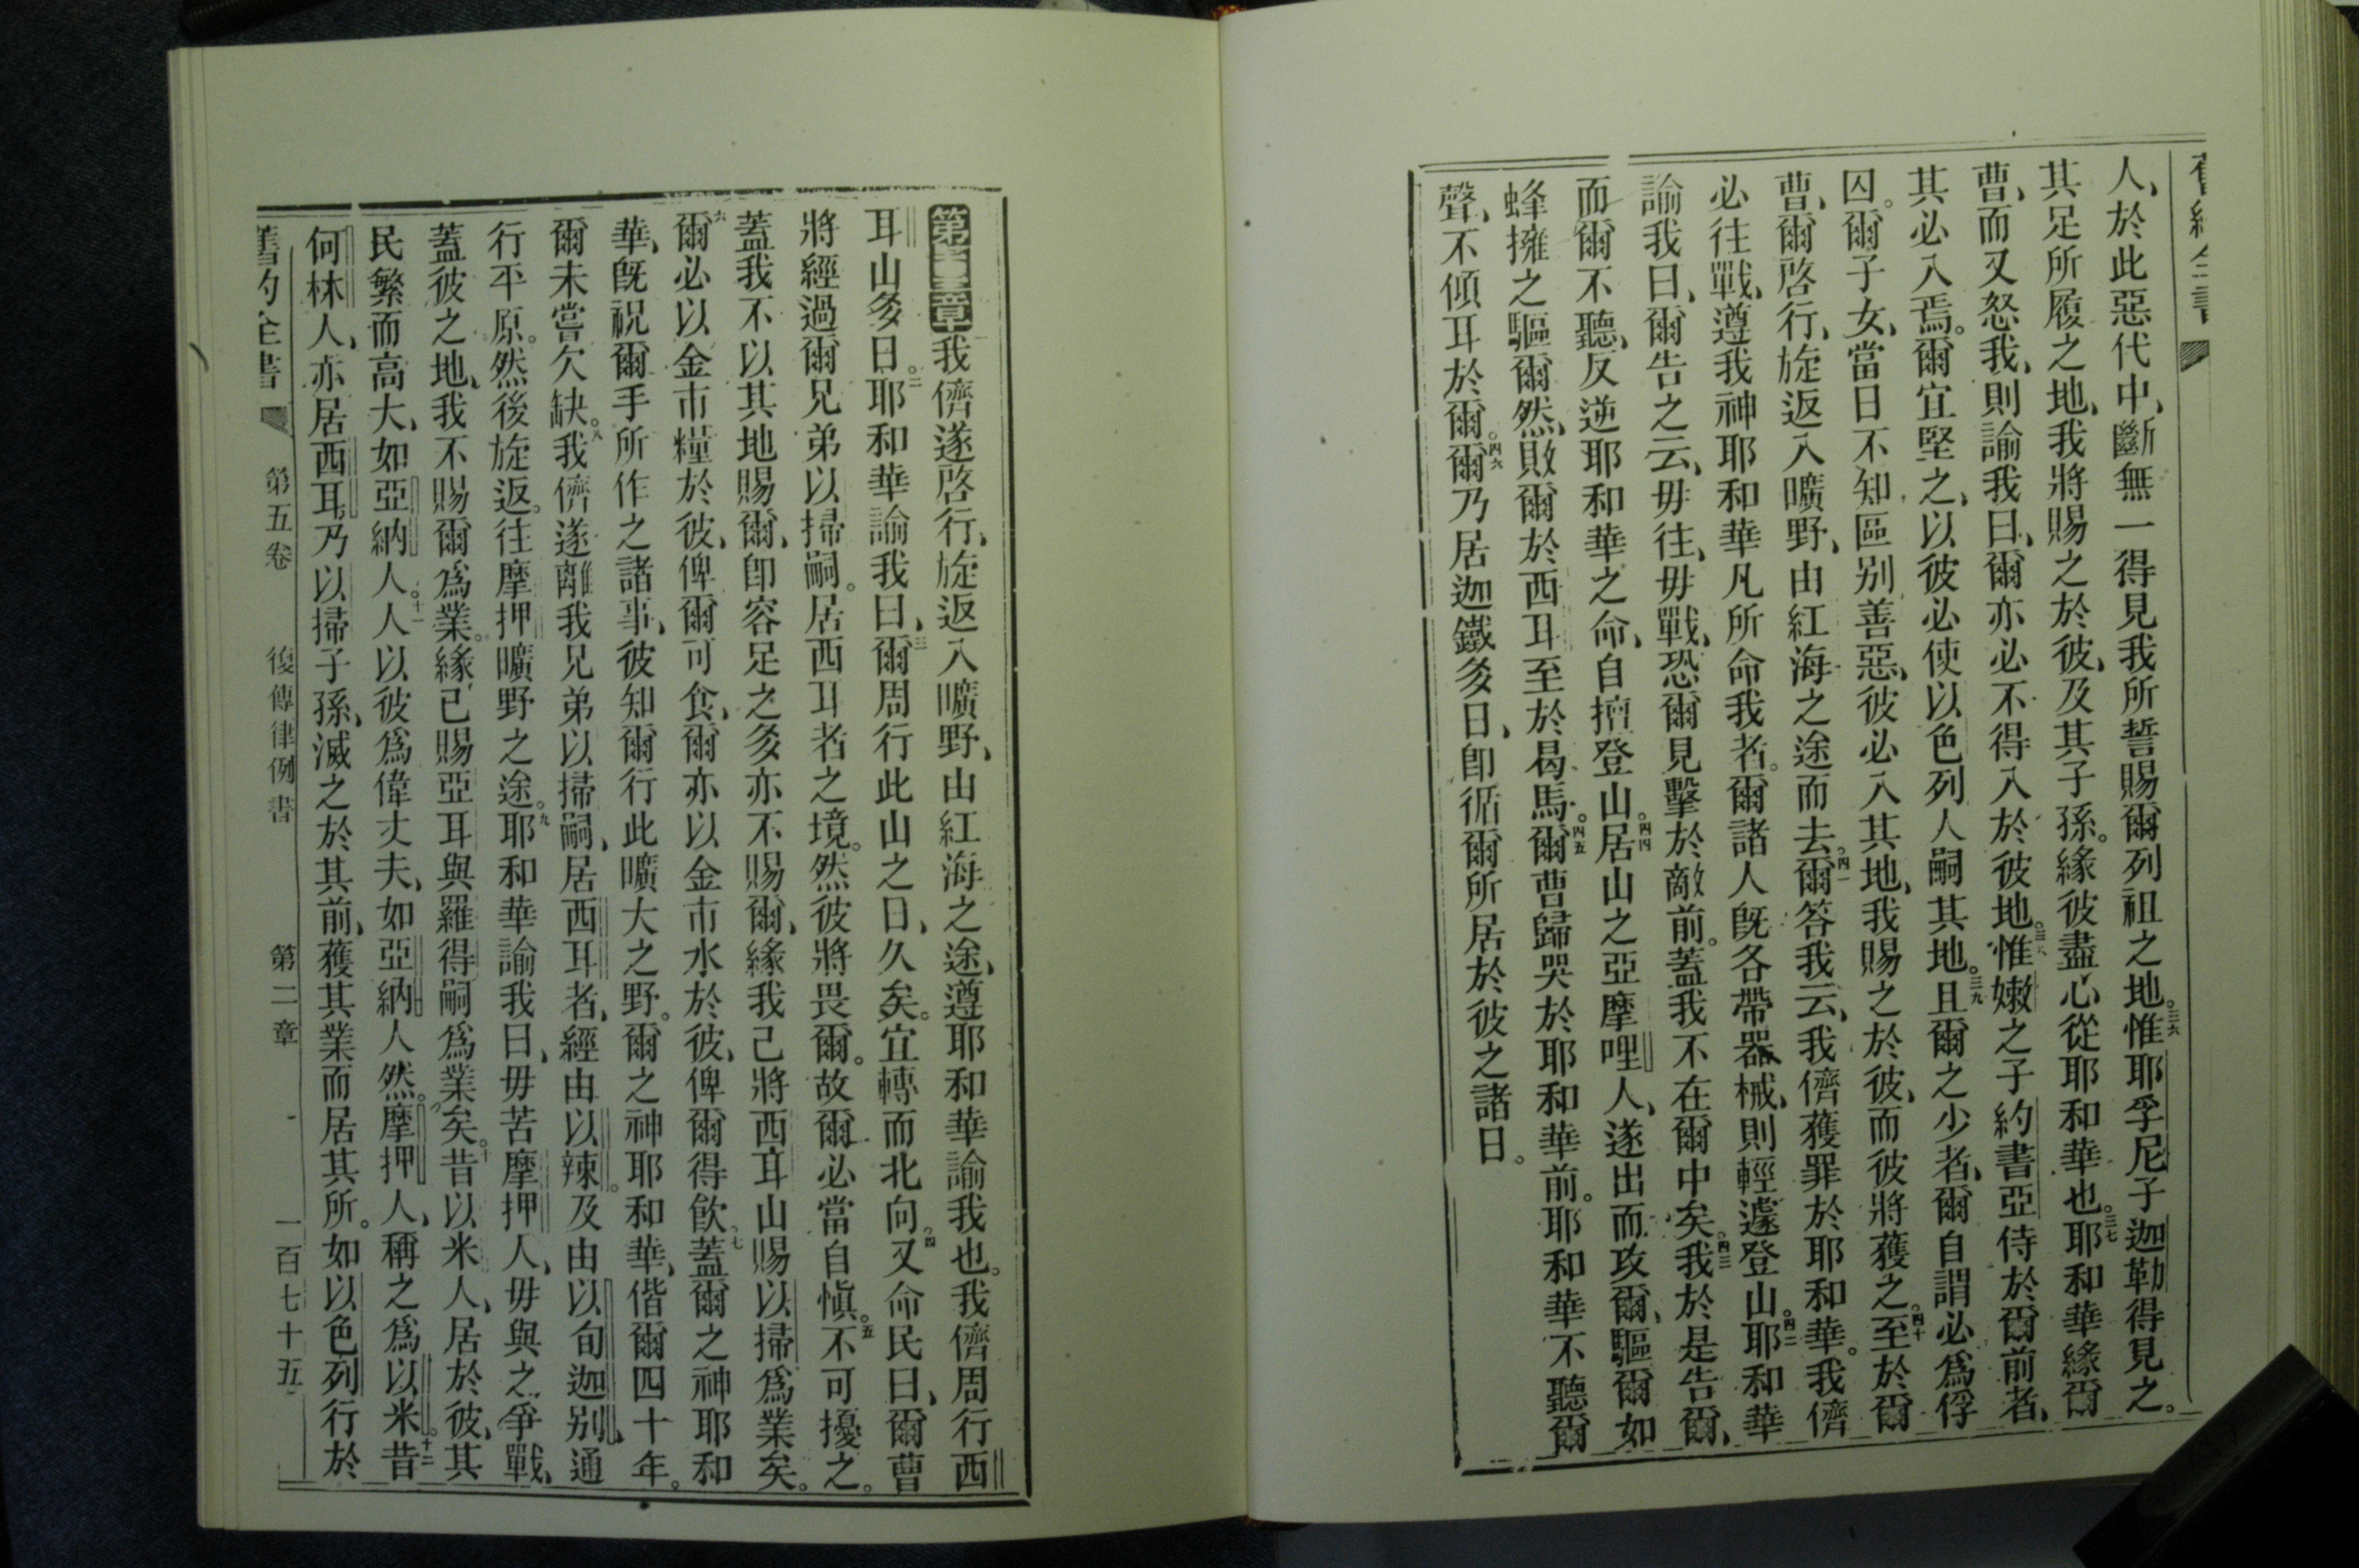 人、於此惡代中、斷無一得見我所誓賜爾列祖之地。三六惟耶孚尼子迦勒得見之。
其足所履之地、我將賜之於彼、及其子孫。緣彼盡心從耶和華也。三七耶和華緣爾
曹、而又怒我、則諭我曰、爾亦必不得入於彼地。三八惟嫩之子約書亞侍於爾前者、
其必入焉。爾宜堅之、以彼必使以色列人嗣其地。三九且爾之少者、爾自謂必爲俘
囚。爾子女、當日不知區别善惡、彼必入其地、我賜之於彼、而彼將獲之。四十至於爾
曹、爾啓行、旋返入曠野、由紅海之途而去。四一爾答我云、我儕獲罪於耶和華。我儕
必往戰、遵我神耶和華凡所命我者。爾諸人旣各帶器械、則輕遽登山。四二耶和華
諭我曰、爾告之云、毋往、毋戰、恐爾見擊於敵前。蓋我不在爾中矣。四三我於是告爾、
而爾不聽、反逆耶和華之命、自擅登山。四四居山之亞摩哩人、遂出而攻爾、驅爾如
蜂擁之驅爾然、敗爾於西耳至於曷馬。四五爾曹歸哭於耶和華前。耶和華不聽爾
聲、不傾耳於爾。四六爾乃居迦鐵多日、卽循爾所居於彼之諸日。
第二章 我儕遂啓行、旋返入曠野、由紅海之途、遵耶和華諭我也。我儕周行西
耳山多日。二耶和華諭我曰、三爾周行此山之日、久矣。宜轉而北向。四又命民曰、爾曹
將經過爾兄弟以掃嗣。居西耳者之境。然彼將畏爾。故爾必當自愼。五不可擾之。
蓋我不以其地賜爾、卽容足之多亦不賜爾、緣我已將西耳山賜以掃爲業矣。
六爾必以金市糧於彼、俾爾可食、爾亦以金市水於彼、俾爾得飲。七蓋爾之神耶和
華、旣祝爾手所作之諸事、彼知爾行此曠大之野。爾之神耶和華、偕爾四十年。
爾未嘗欠缺。八我儕遂離我兄弟以掃嗣、居西耳者、經由以辣。及由以旬迦别、通
行平原。然後旋返。往摩押曠野之途。九耶和華諭我曰、毋苦摩押人、毋與之爭戰、
蓋彼之地、我不賜爾爲業。緣已賜亞耳與羅得嗣爲業矣。十昔以米人、居於彼、其
民繁而高大、如亞納人。十一人以彼爲偉丈夫、如亞納人然。摩押人、稱之爲以米。十二昔
何林人、亦居西耳。乃以掃子孫、滅之於其前、獲其業而居其所。如以色列行於
第五卷 復傳律例書 第二章 一百七十五